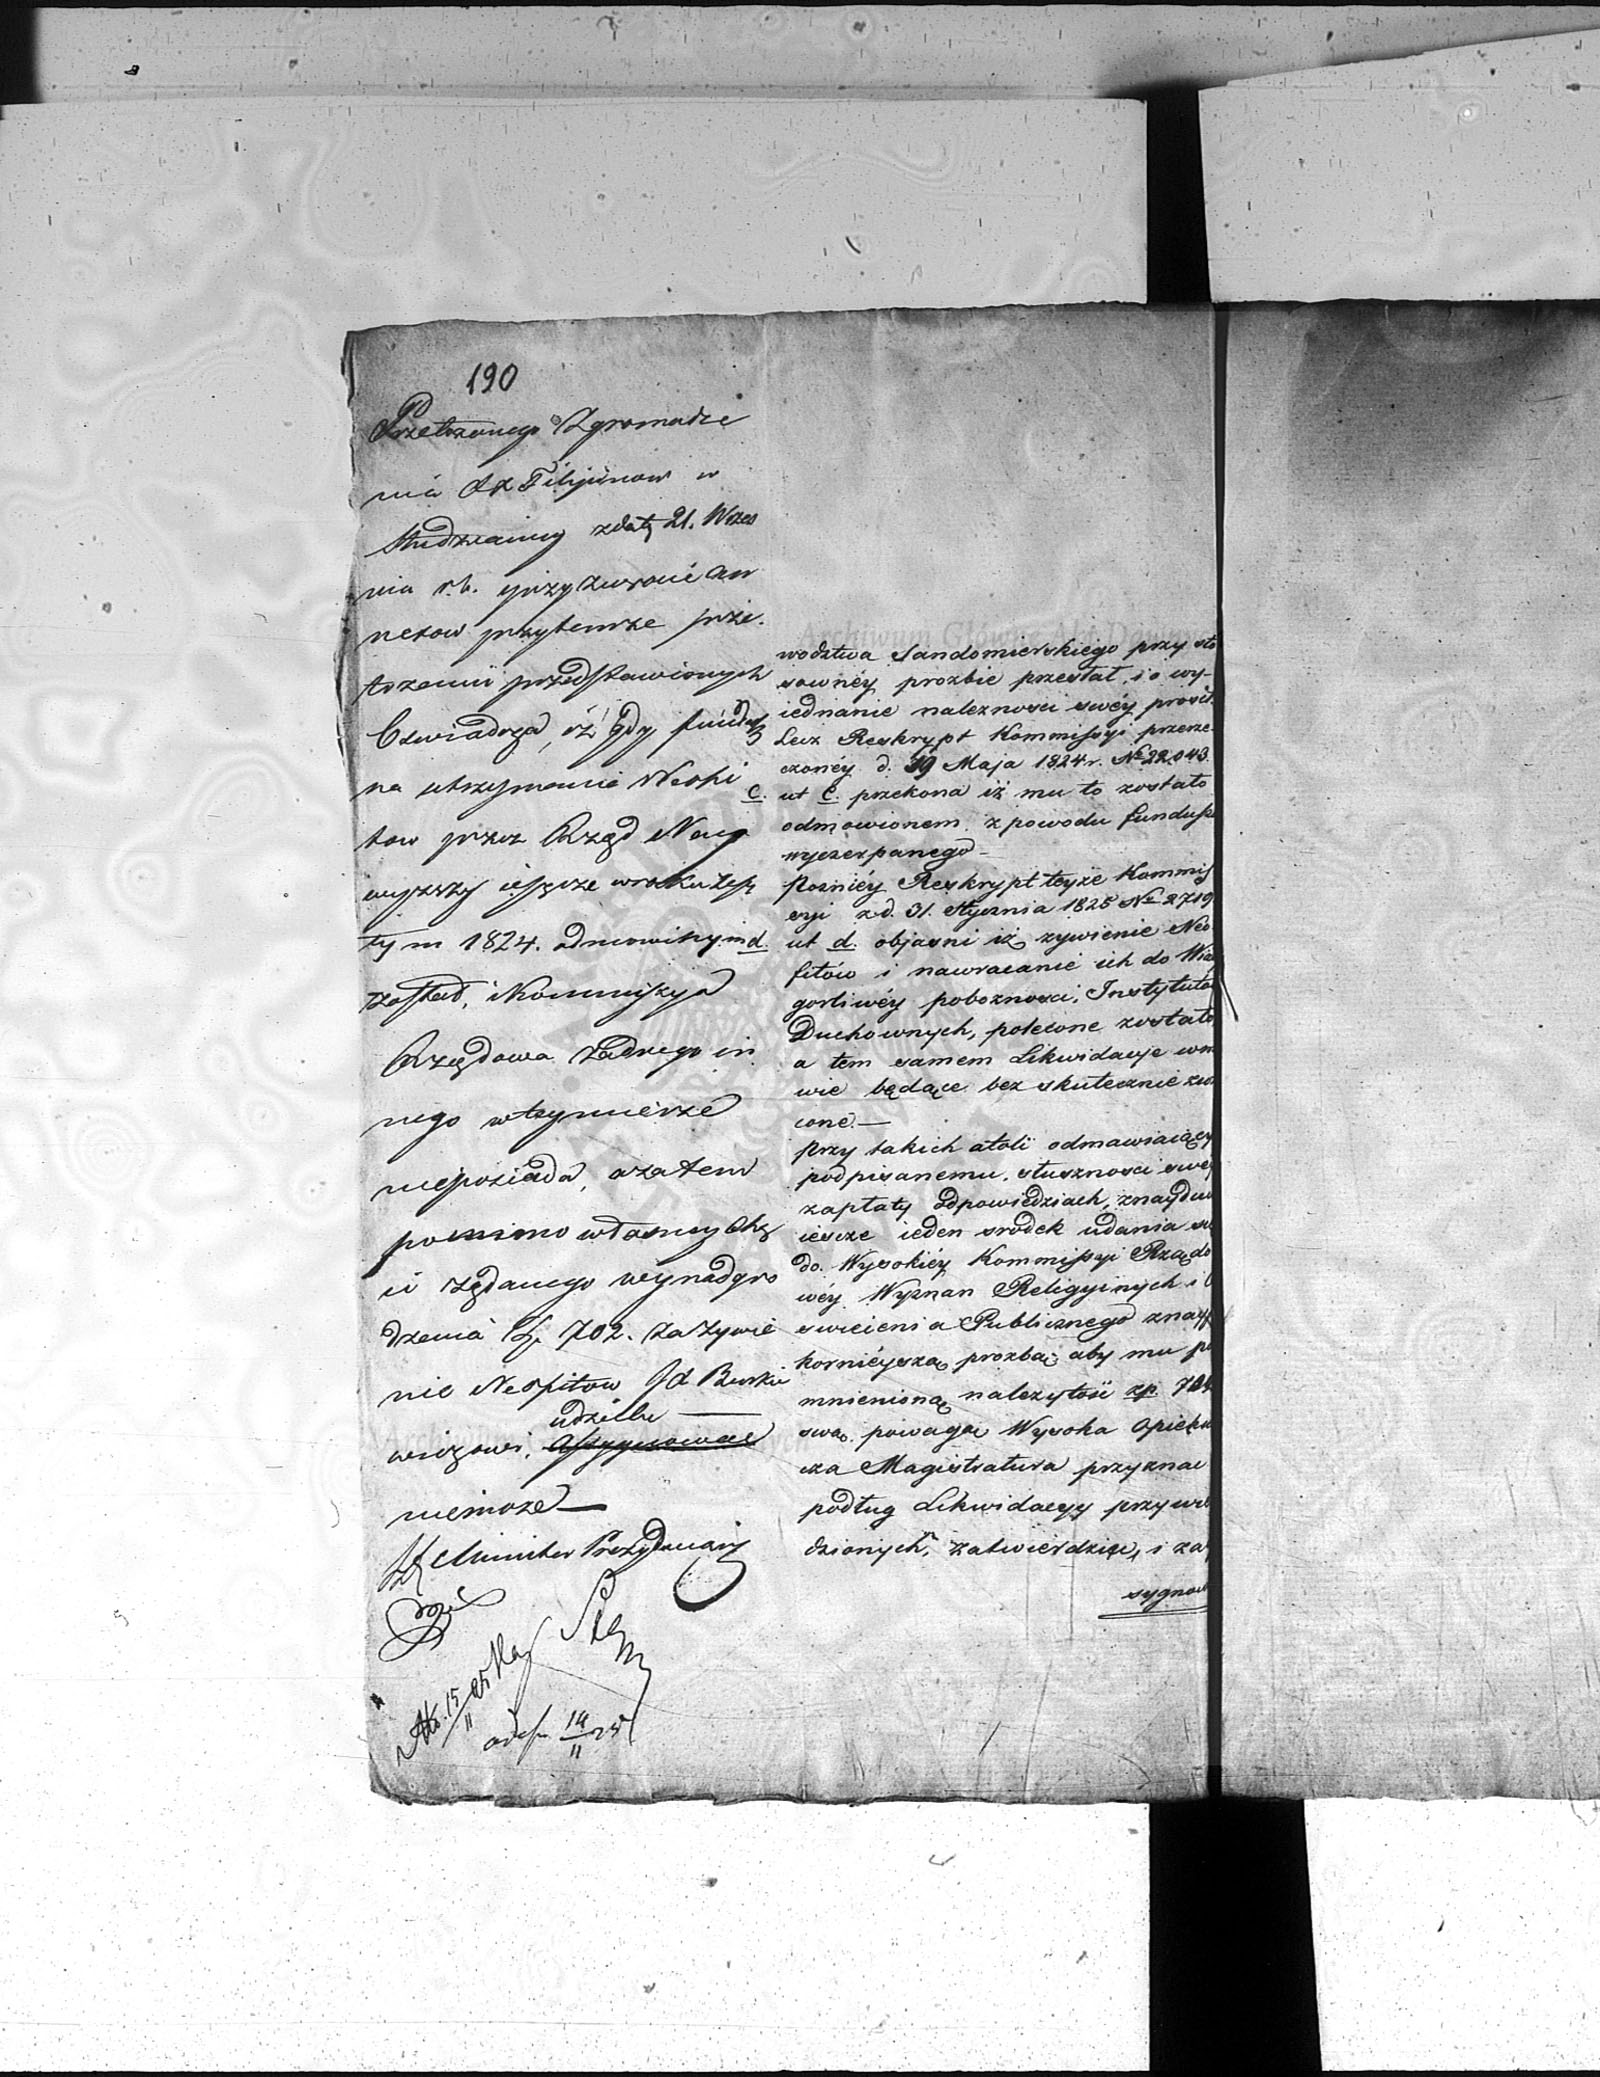 190
Przełożonego Zgromadze
nia XX Filipinow w
Studzianny z daty 21. Wrześ
nia r.b. przy zwrocie an
nexow przytemże prze-
łożeniu przedstawionych
Oświadcza, iż gdy fundusz
na utrzymanie Neofi
tow przez Rząd Nay
wyższy ieszcze w roku zeszłym 1824. odmowionym
został, i Kommissya
Rządowa żadnego in
nego w tey mierze
nieposiada, a zatem
pomimo własney chę
ci żądanego wynadgro
dzenia złp. 702. za żywie
nie Neofitow Xd
udzielić
Assygnować
niemoże —
Minister Prezyduiący
14/11 25
15/11 25
Archiwum Główne Akt Dawnych
wodztwa Sandomierskiego przy sto
sownéy prozbie przesłał, i o wy-
iednanie nalezności swéy prosił.
Lecz Reskrypt Kommissyi przerze-
czonéy d. 19 Maja 1824 r. No 22043.
C. ut C. przekona iż mu to zostało
odmowionem z powodu fundusz
wyczerpanego —
Pozniéy Reskrypt teyże Kommis
syi z d. 31. Stycznia 1825 No 2719
d. ut d. objasni iż zywienie Neo
fitów i nawracanie ich do Wia
gorliwéy pobozności, Instytuto
Duchownych, polecone zostało
a tem samem Likwidacje w m
wie będące bez skutecznie zwr
cone. —
Przy takich atoli odmawiaiący
podpisanemu, słuszności swéy
zapłaty odpowiedziach, znaydu
ieszcze ieden srodek udania się
do Wysokiéy Kommissyi Rządo
wéy Wyznan Religyinych i O
swiecienia Publicznego z nayp
kornieyszą prozbą aby mu po
mnienioną nalezytość zp. 70
swą powagą Wysoka Opieku
cza Magistratura przyznać
podług Likwidacyy przywie
dzionych, zatwierdzić, i za
sygnow